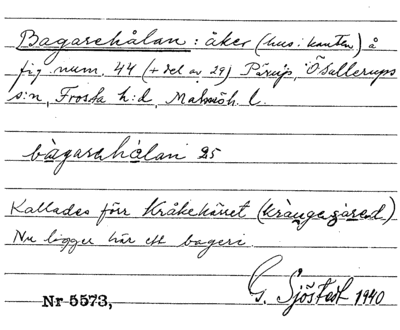 Bagarehålan: åker (hus i kanten) å
fig. num. 44 (+ del av 29) Pärup, Ö Sallerups
s:n, Frosta h:d, Malmöh. l.
bàgarehǻlan 25
Kallades förr Kråkekärret
Nu ligger här ett bageri.
G. Sjöstedt 1940
Nr 5573,